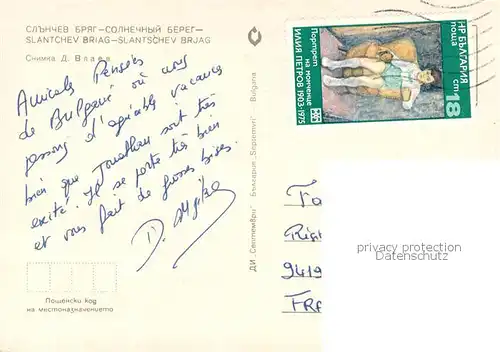 СЛЪНЧЕВ БРЯГ—СОЛНЕЧНЫЙ БЕРЕГ—
SLANTCHEV BRIAG—SLANTSCHEV BRJAG
Снимка Д. Влаев
Amicales Pensées
de Bulgarie où nous
passons d'agréables vacances
bien que Jonathan soit très
excité. Il se porte très bien
et vous fait de grosses bises.
D.
Пощенски код
на местоназначението
ДИ „Септември" България „Septemvri" Bulgaria
НР БЪЛГАРИЯ
поща
ст 18
Портрет
на момиченце
ИЛИЯ ПЕТРОВ 1903-1975
9419
FRA
privacy protection
Datenschutz